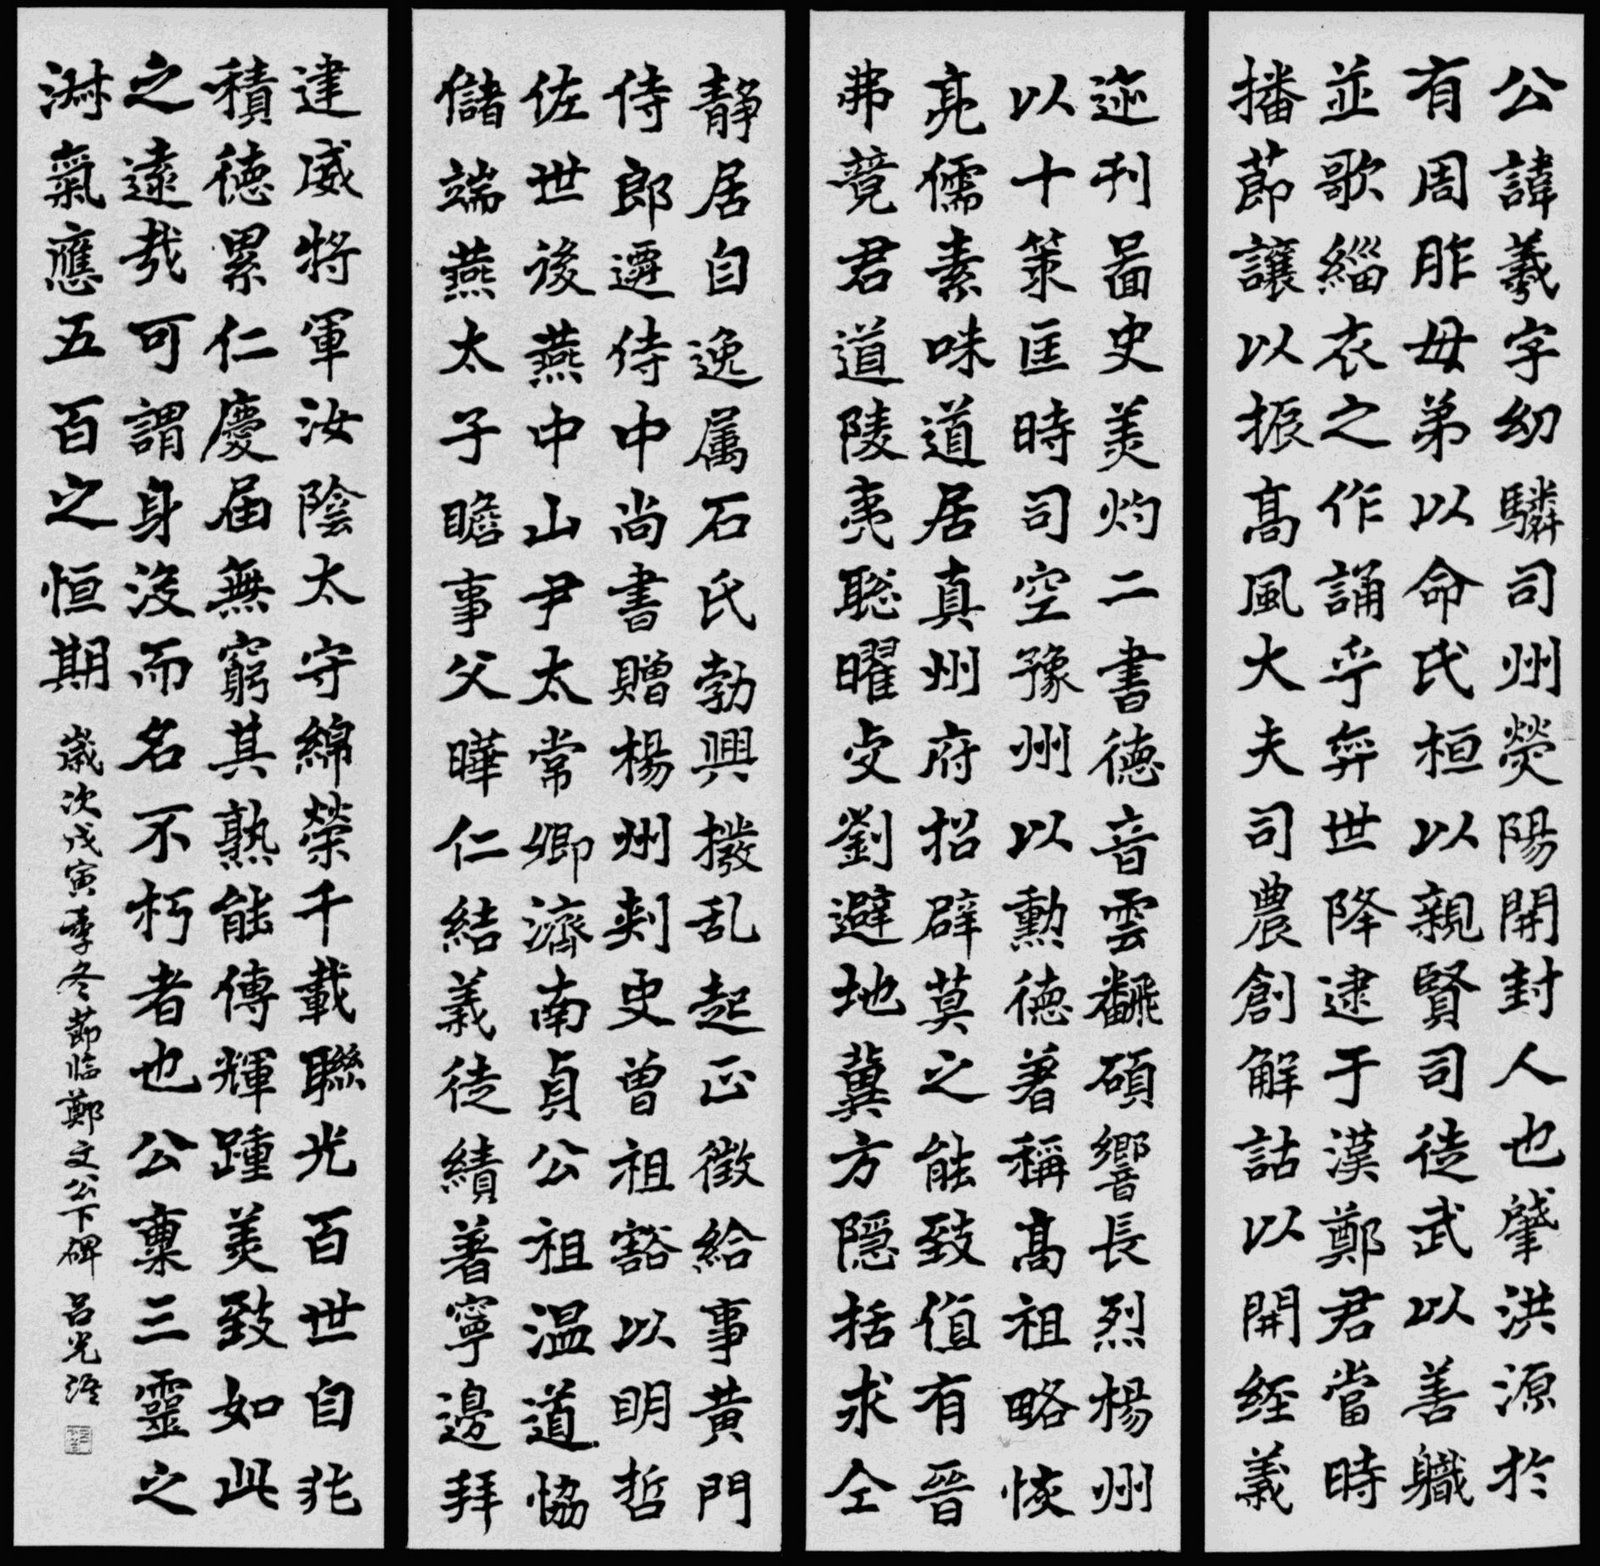 公諱羲字幼驎司州熒陽開封人也肇洪源於
有周胙母弟以命氏桓以親賢司徒武以善職
並歌緇衣之作誦乎弈世降逮于漢鄭君當時
播節讓以振高風大夫司農創解詁以開經義
迹刊啚史美灼二書德音雲翻碩響長烈楊州
以十策匡時司空豫州以勳德著稱高祖略恢
亮儒素味道居真州府招辟莫之能致值有晉
弗竟君道陵夷聡曜交劉避地冀方隱括求仝
靜居自逸属石氏勃興撥乱起正徵給事黃門
侍郎遷侍中尚書贈楊州刺史曾祖豁以明哲
佐世後燕中山尹太常卿濟南貞公祖温道協
儲端燕太子瞻事父曄仁結義徒績著寧邊拜
建威將軍汝陰太守綿榮千載聯光百世自非
積德累仁慶屆無窮其熟能傳輝踵美致如此
之遠哉可謂身沒而名不朽者也公稟三靈之
淋氣應五百之恒期
歲次戊寅季冬節临鄭文公下碑 吕光